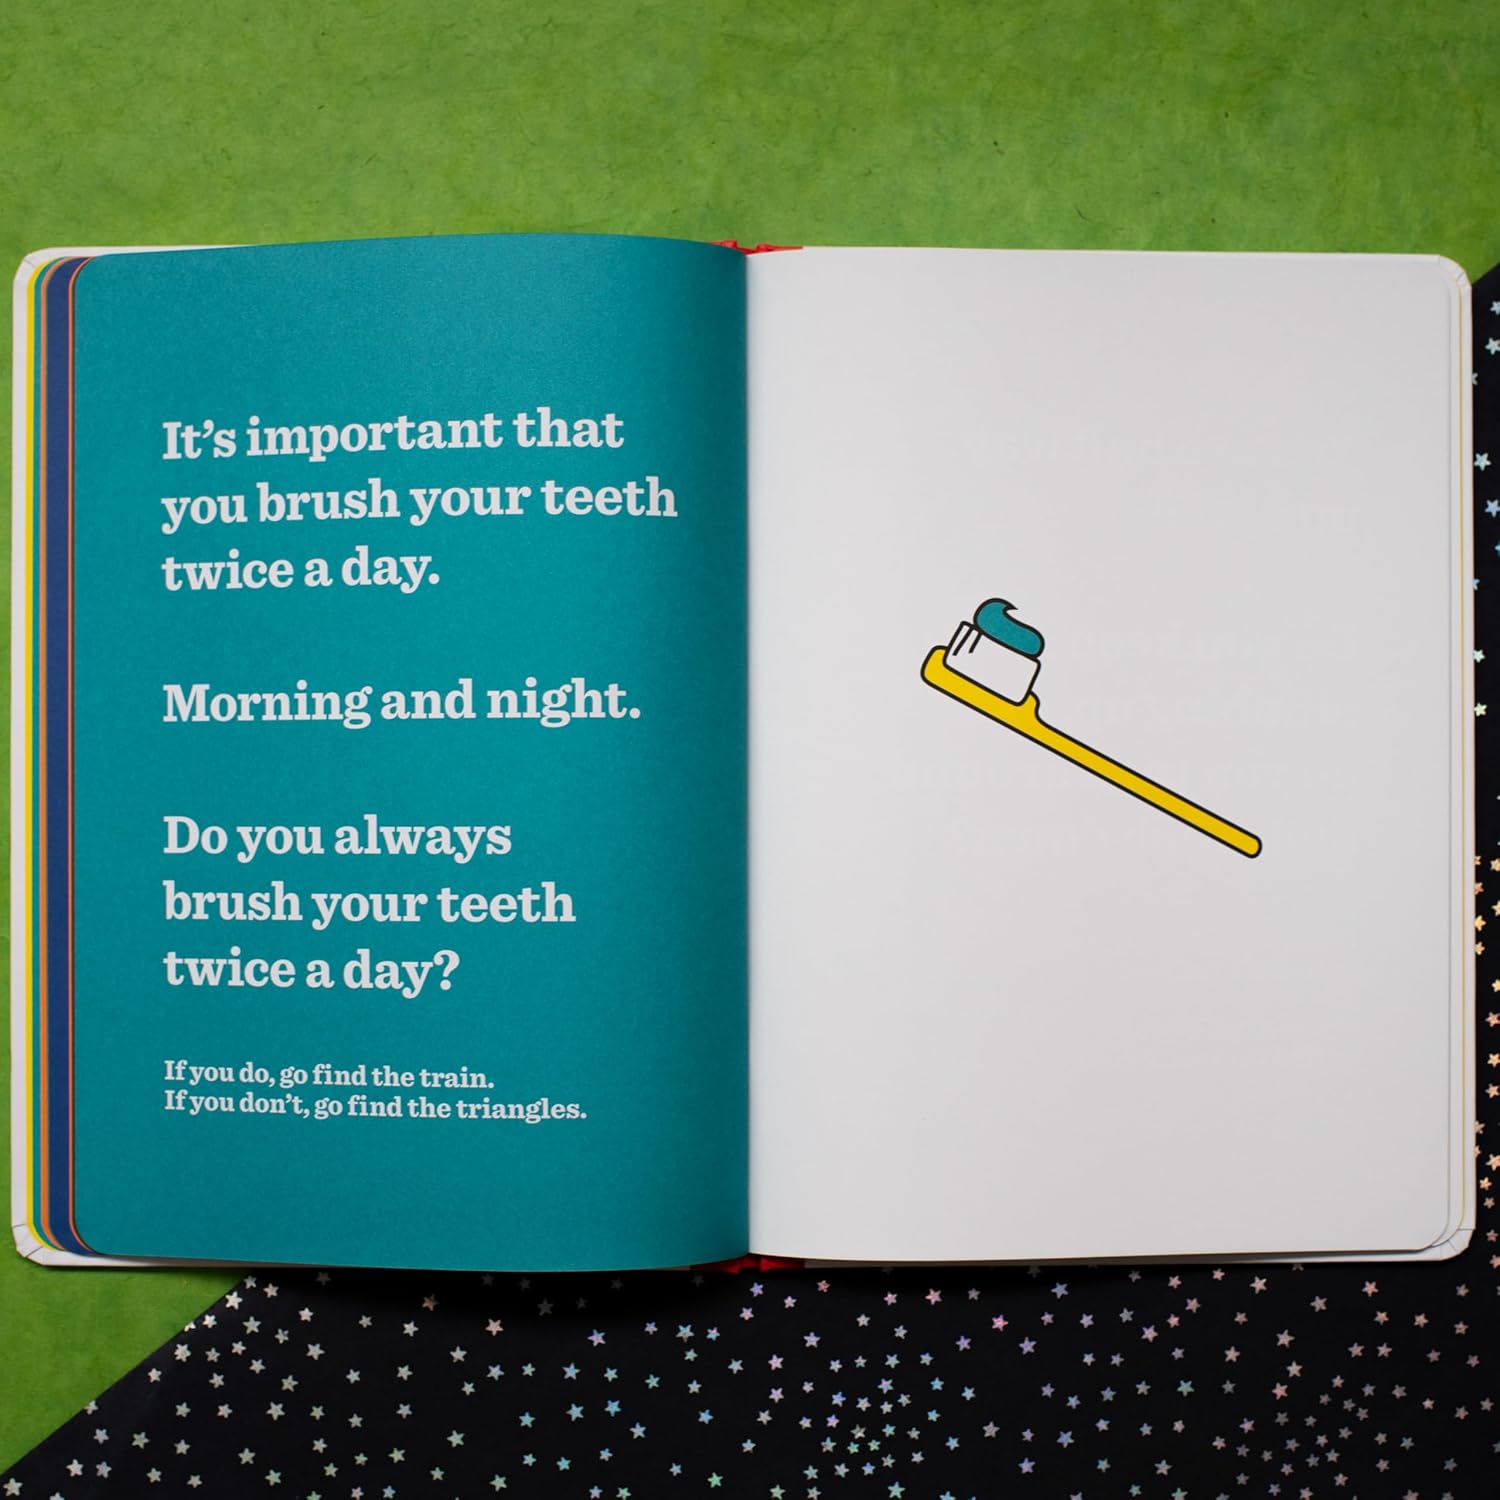 It's important that
you brush your teeth
twice a day.
Morning and night.
Do you always
brush your teeth
twice a day?
If you do, go find the train.
If you don't, go find the triangles.